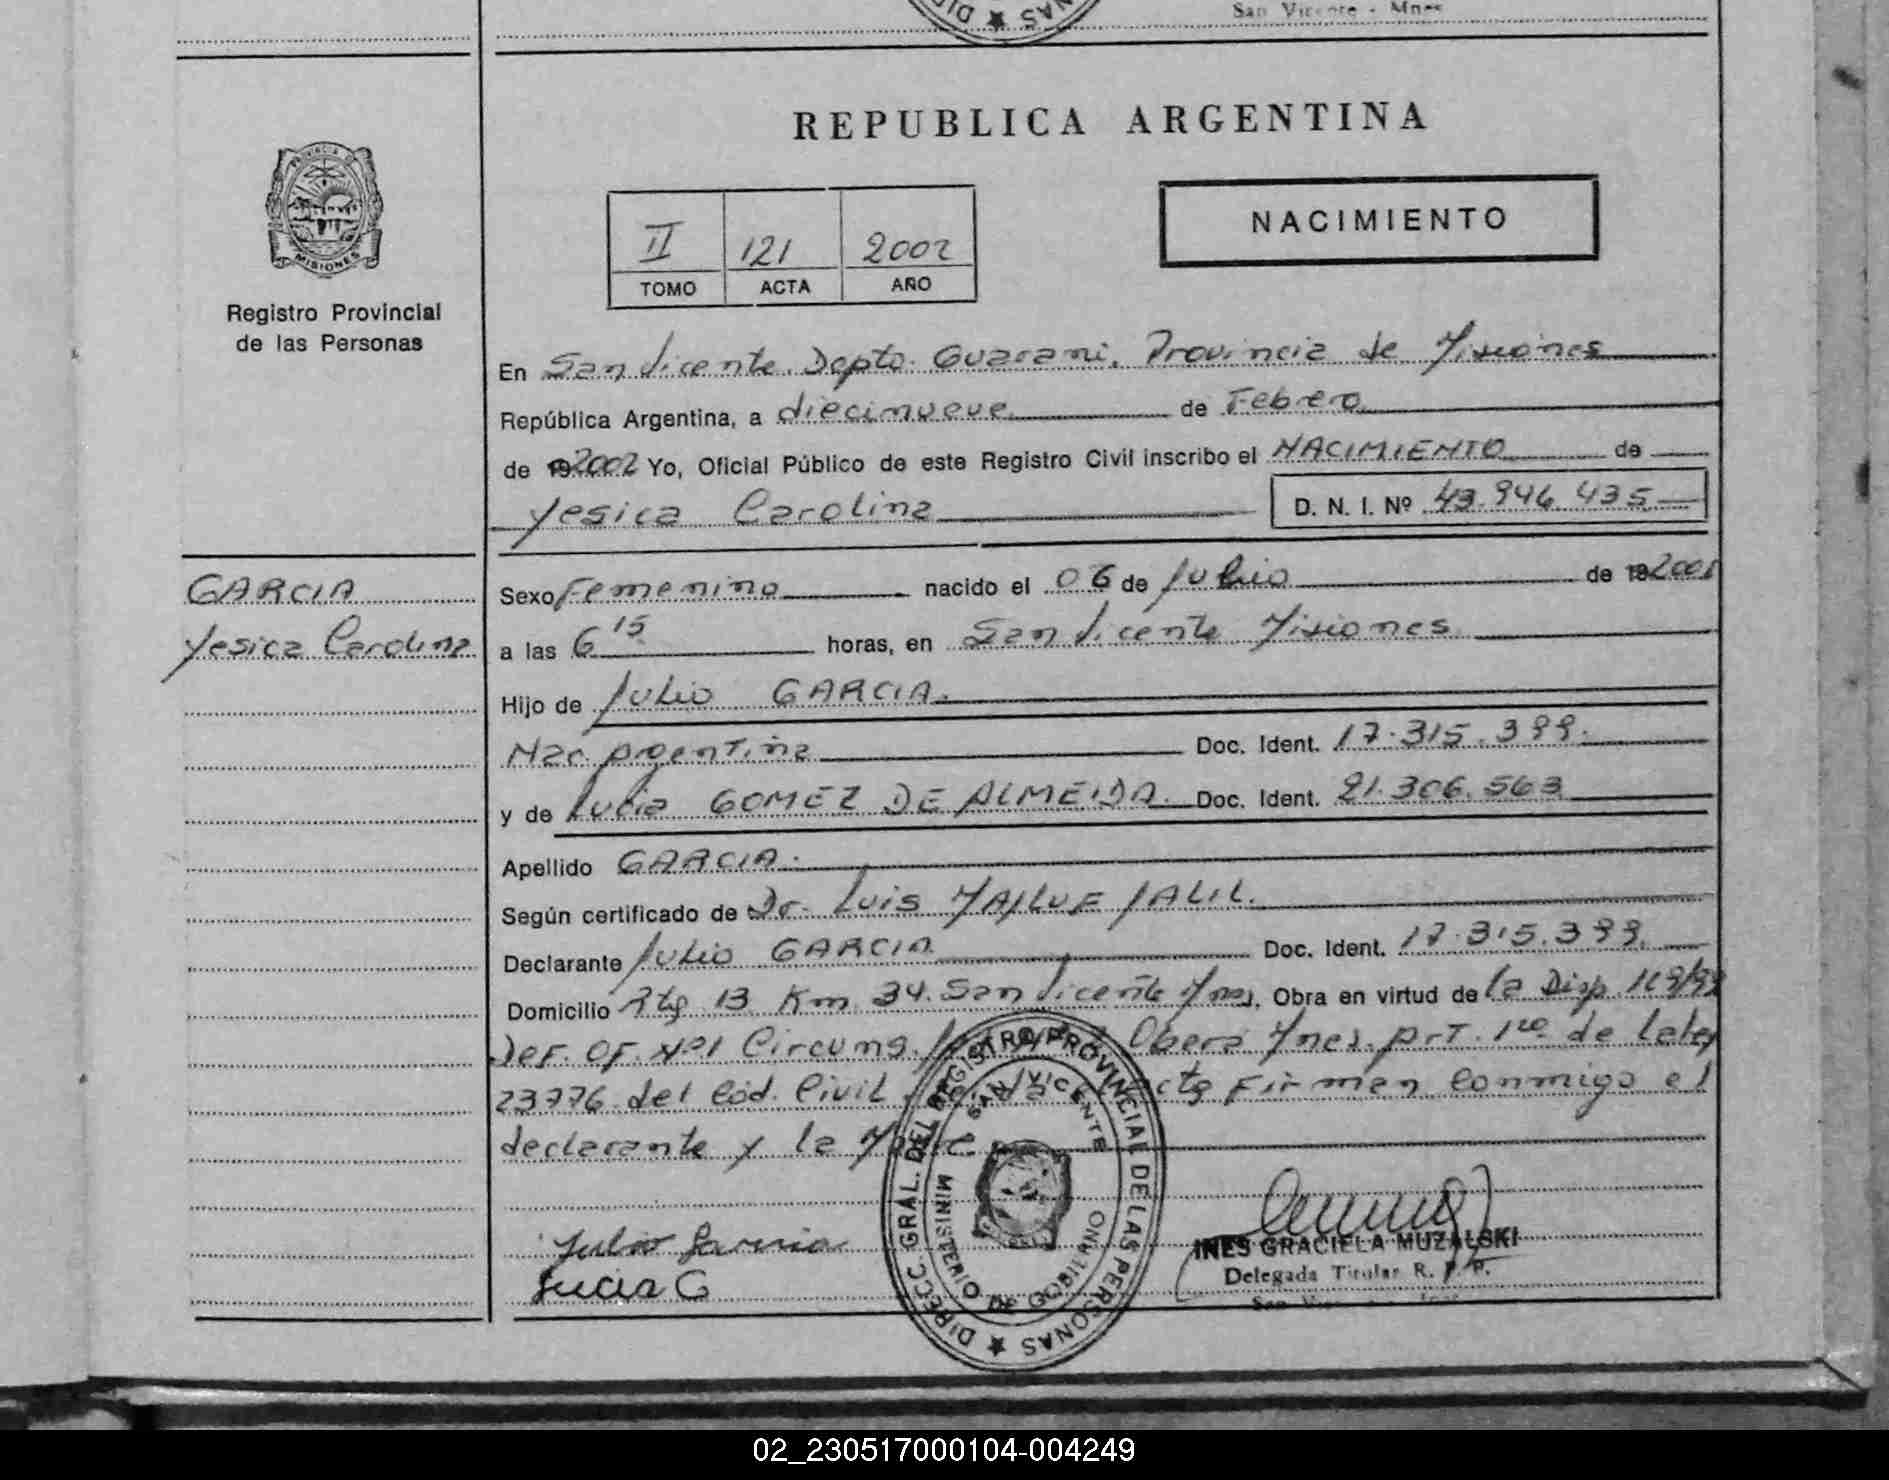 San Vicente - Mnes
REPUBLICA ARGENTINA
PROVINCIA DE
MISIONES
Registro Provincial
de las Personas
II 121 2002
TOMO ACTA AÑO
NACIMIENTO
En San Vicente Depto. Guarani, Provincia de Misiones
República Argentina, a diecinueve de Febrero
de 2002 Yo, Oficial Público de este Registro Civil inscribo el NACIMIENTO de
Yesica Carolina D. N. I. Nº 43.946.435
GARCIA
Yesica Carolina
Sexo Femenino nacido el 06 de Julio de 2001
a las 6 15 horas, en San Vicente Misiones
Hijo de Julio GARCIA.
Nac. Argentina Doc. Ident. 17.315.399.
y de Lucia GOMEZ DE ALMEIDA. Doc. Ident. 21.306.563
Apellido GARCIA.
Según certificado de Dr. Luis JALIL.
Declarante Julio GARCIA Doc. Ident. 17.315.399.
Domicilio Rta 13 Km 34. San Vicente Mnes. Obra en virtud de la Disp.
Def. Of. Nº1 Circuns. Obera Mnes. de la ley
del Cód. Civil Firman Conmigo el
declarante y la Madre
DIRECC. GRAL. DEL REGISTRO PROVINCIAL DE LAS PERSONAS
SAN VICENTE
MINISTERIO DE GOBIERNO
Julio Garcia
Lucia G
INES GRACIELA MUZALSKI
Delegada Titular R. P. P.
02_230517000104-004249